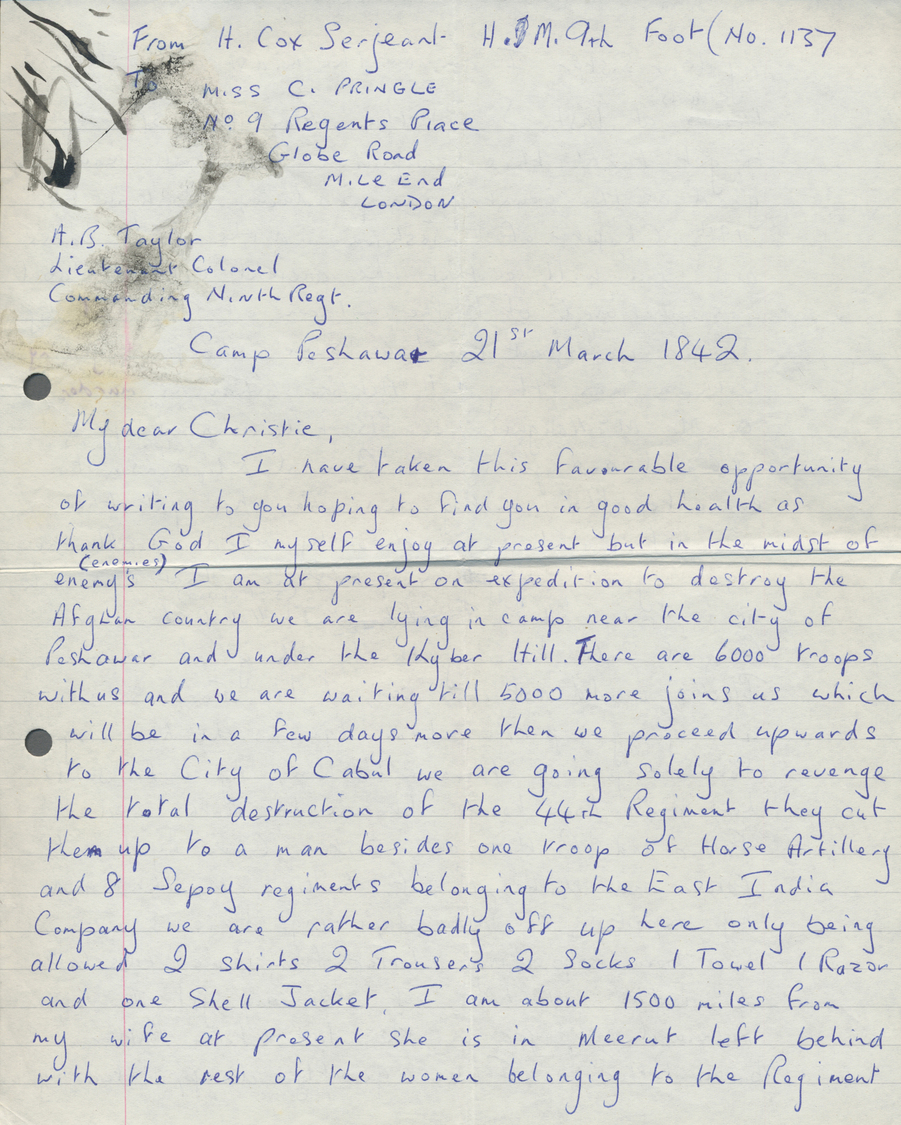 From H. Cox Serjeant H.M. 9th Foot (No. 1137
To MISS C. PRINGLE
No 9 Regents Place
Globe Road
Mile End
LONDON
A.B. Taylor
Lieutenant Colonel
Commanding Ninth Regt.
Camp Peshawar 21st March 1842.
My dear Christie,
I have taken this favourable opportunity
of writing to you hoping to find you in good health as
thank God I myself enjoy at present but in the midst of
(enemies)
enemy's I am at present on expedition to destroy the
Afghan country we are lying in camp near the city of
Peshawar and under the Kyber Hill. There are 6000 troops
with us and we are waiting till 5000 more joins us which
will be in a few days more then we proceed upwards
to the City of Cabul we are going solely to revenge
the total destruction of the 44th Regiment they cut
them up to a man besides one troop of Horse Artillery
and 8 Sepoy regiments belonging to the East India
Company we are rather badly off up here only being
allowed 2 shirts 2 Trousers 2 Socks 1 Towel 1 Razor
and one Shell Jacket. I am about 1500 miles from
my wife at present she is in Meerut left behind
with the rest of the women belonging to the Regiment